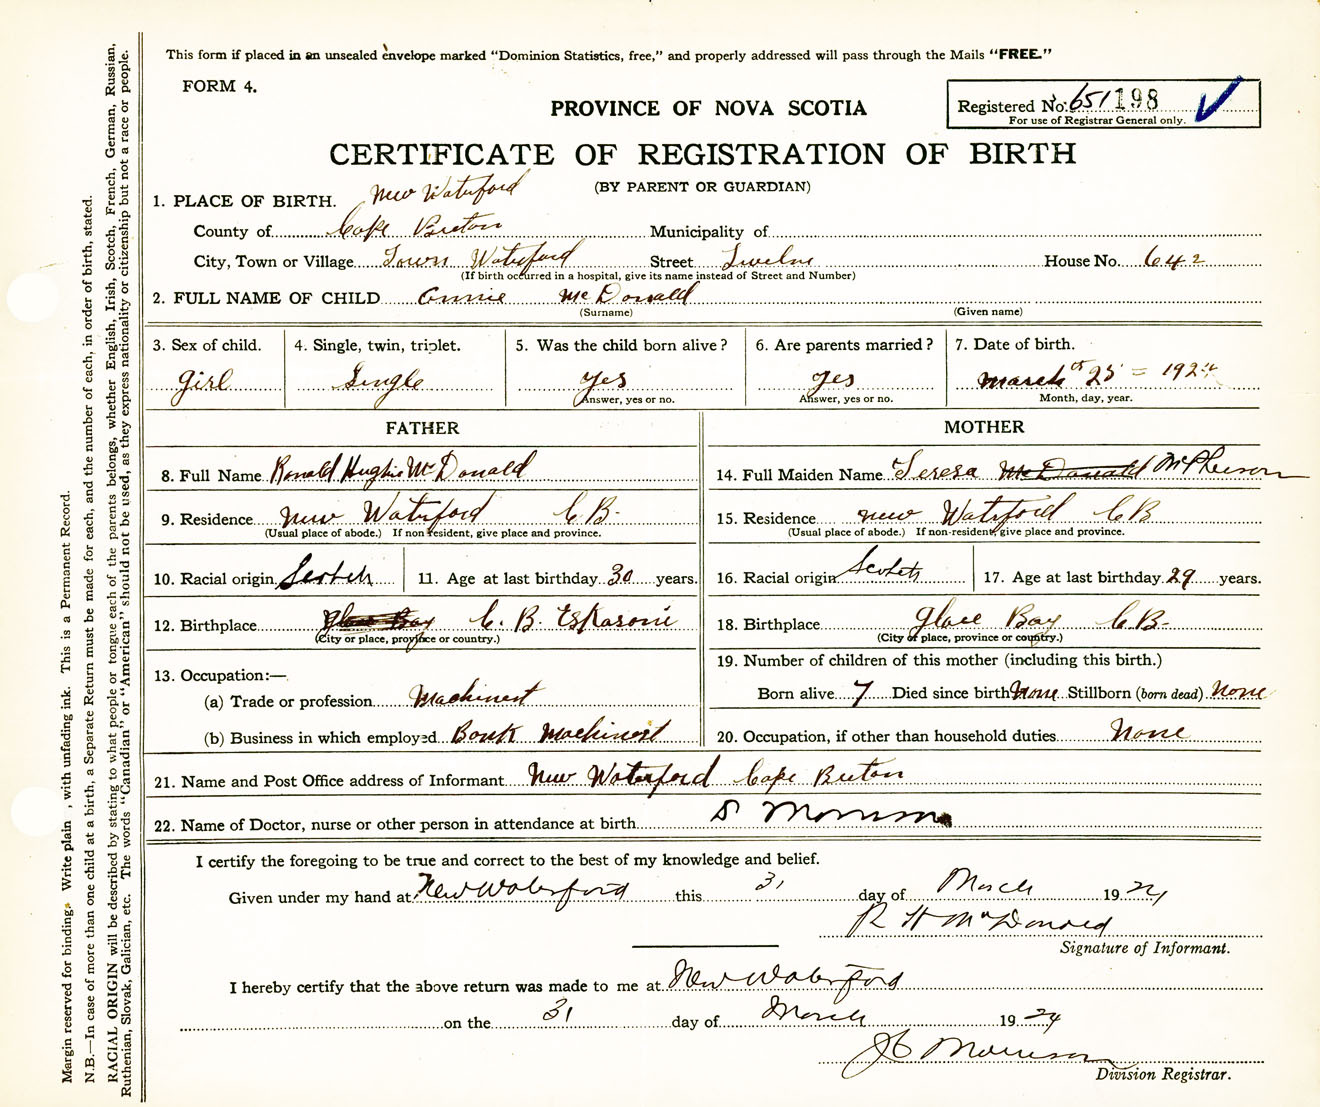 This form if placed in an unsealed envelope marked “Dominion Statistics, free,” and properly addressed will pass through the Mails “FREE.”
FORM 4.
PROVINCE OF NOVA SCOTIA
Registered No. 651198
For use of Registrar General only.
CERTIFICATE OF REGISTRATION OF BIRTH
(BY PARENT OR GUARDIAN)
1. PLACE OF BIRTH. New Waterford
County of Cape Breton Municipality of
City, Town or Village Town Waterford Street Twelve House No. 642
(If birth occurred in a hospital, give its name instead of Street and Number)
2. FULL NAME OF CHILD Annie McDonald
(Surname) (Given name)
3. Sex of child. 4. Single, twin, triplet. 5. Was the child born alive? 6. Are parents married? 7. Date of birth.
girl Single yes yes March 25 = 192
Answer, yes or no. Answer, yes or no. Month, day, year.
FATHER MOTHER
8. Full Name Ronald Hughie McDonald 14. Full Maiden Name Teresa McDonald McPherson
9. Residence New Waterford C.B. 15. Residence New Waterford CB
(Usual place of abode.) If non resident, give place and province. (Usual place of abode.) If non-resident, give place and province.
10. Racial origin Scotch 11. Age at last birthday 30 years. 16. Racial origin Scotch 17. Age at last birthday 29 years.
12. Birthplace Glace Bay C. B. Eskasoni 18. Birthplace Glace Bay C.B.
(City or place, province or country.) (City or place, province or country.)
13. Occupation:— 19. Number of children of this mother (including this birth.)
(a) Trade or profession Machinest Born alive 7 Died since birth None Stillborn (born dead) None
(b) Business in which employed Machinist 20. Occupation, if other than household duties None
21. Name and Post Office address of Informant New Waterford Cape Breton
22. Name of Doctor, nurse or other person in attendance at birth
I certify the foregoing to be true and correct to the best of my knowledge and belief.
Given under my hand at New Waterford this 31 day of March 1924
R H McDonald
Signature of Informant.
I hereby certify that the above return was made to me at New Waterford
on the 31 day of March 1924
J C Morrison
Division Registrar.
Margin reserved for binding. Write plain , with unfading ink. This is a Permanent Record.
N.B.—In case of more than one child at a birth, a Separate Return must be made for each, and the number of each, in order of birth, stated.
RACIAL ORIGIN will be described by stating to what people or tongue each of the parents belongs, whether English, Irish, Scotch, French, German, Russian,
Ruthenian, Slovak, Galician, etc. The words “Canadian” or “American” should not be used, as they express nationality or citizenship but not a race or people.